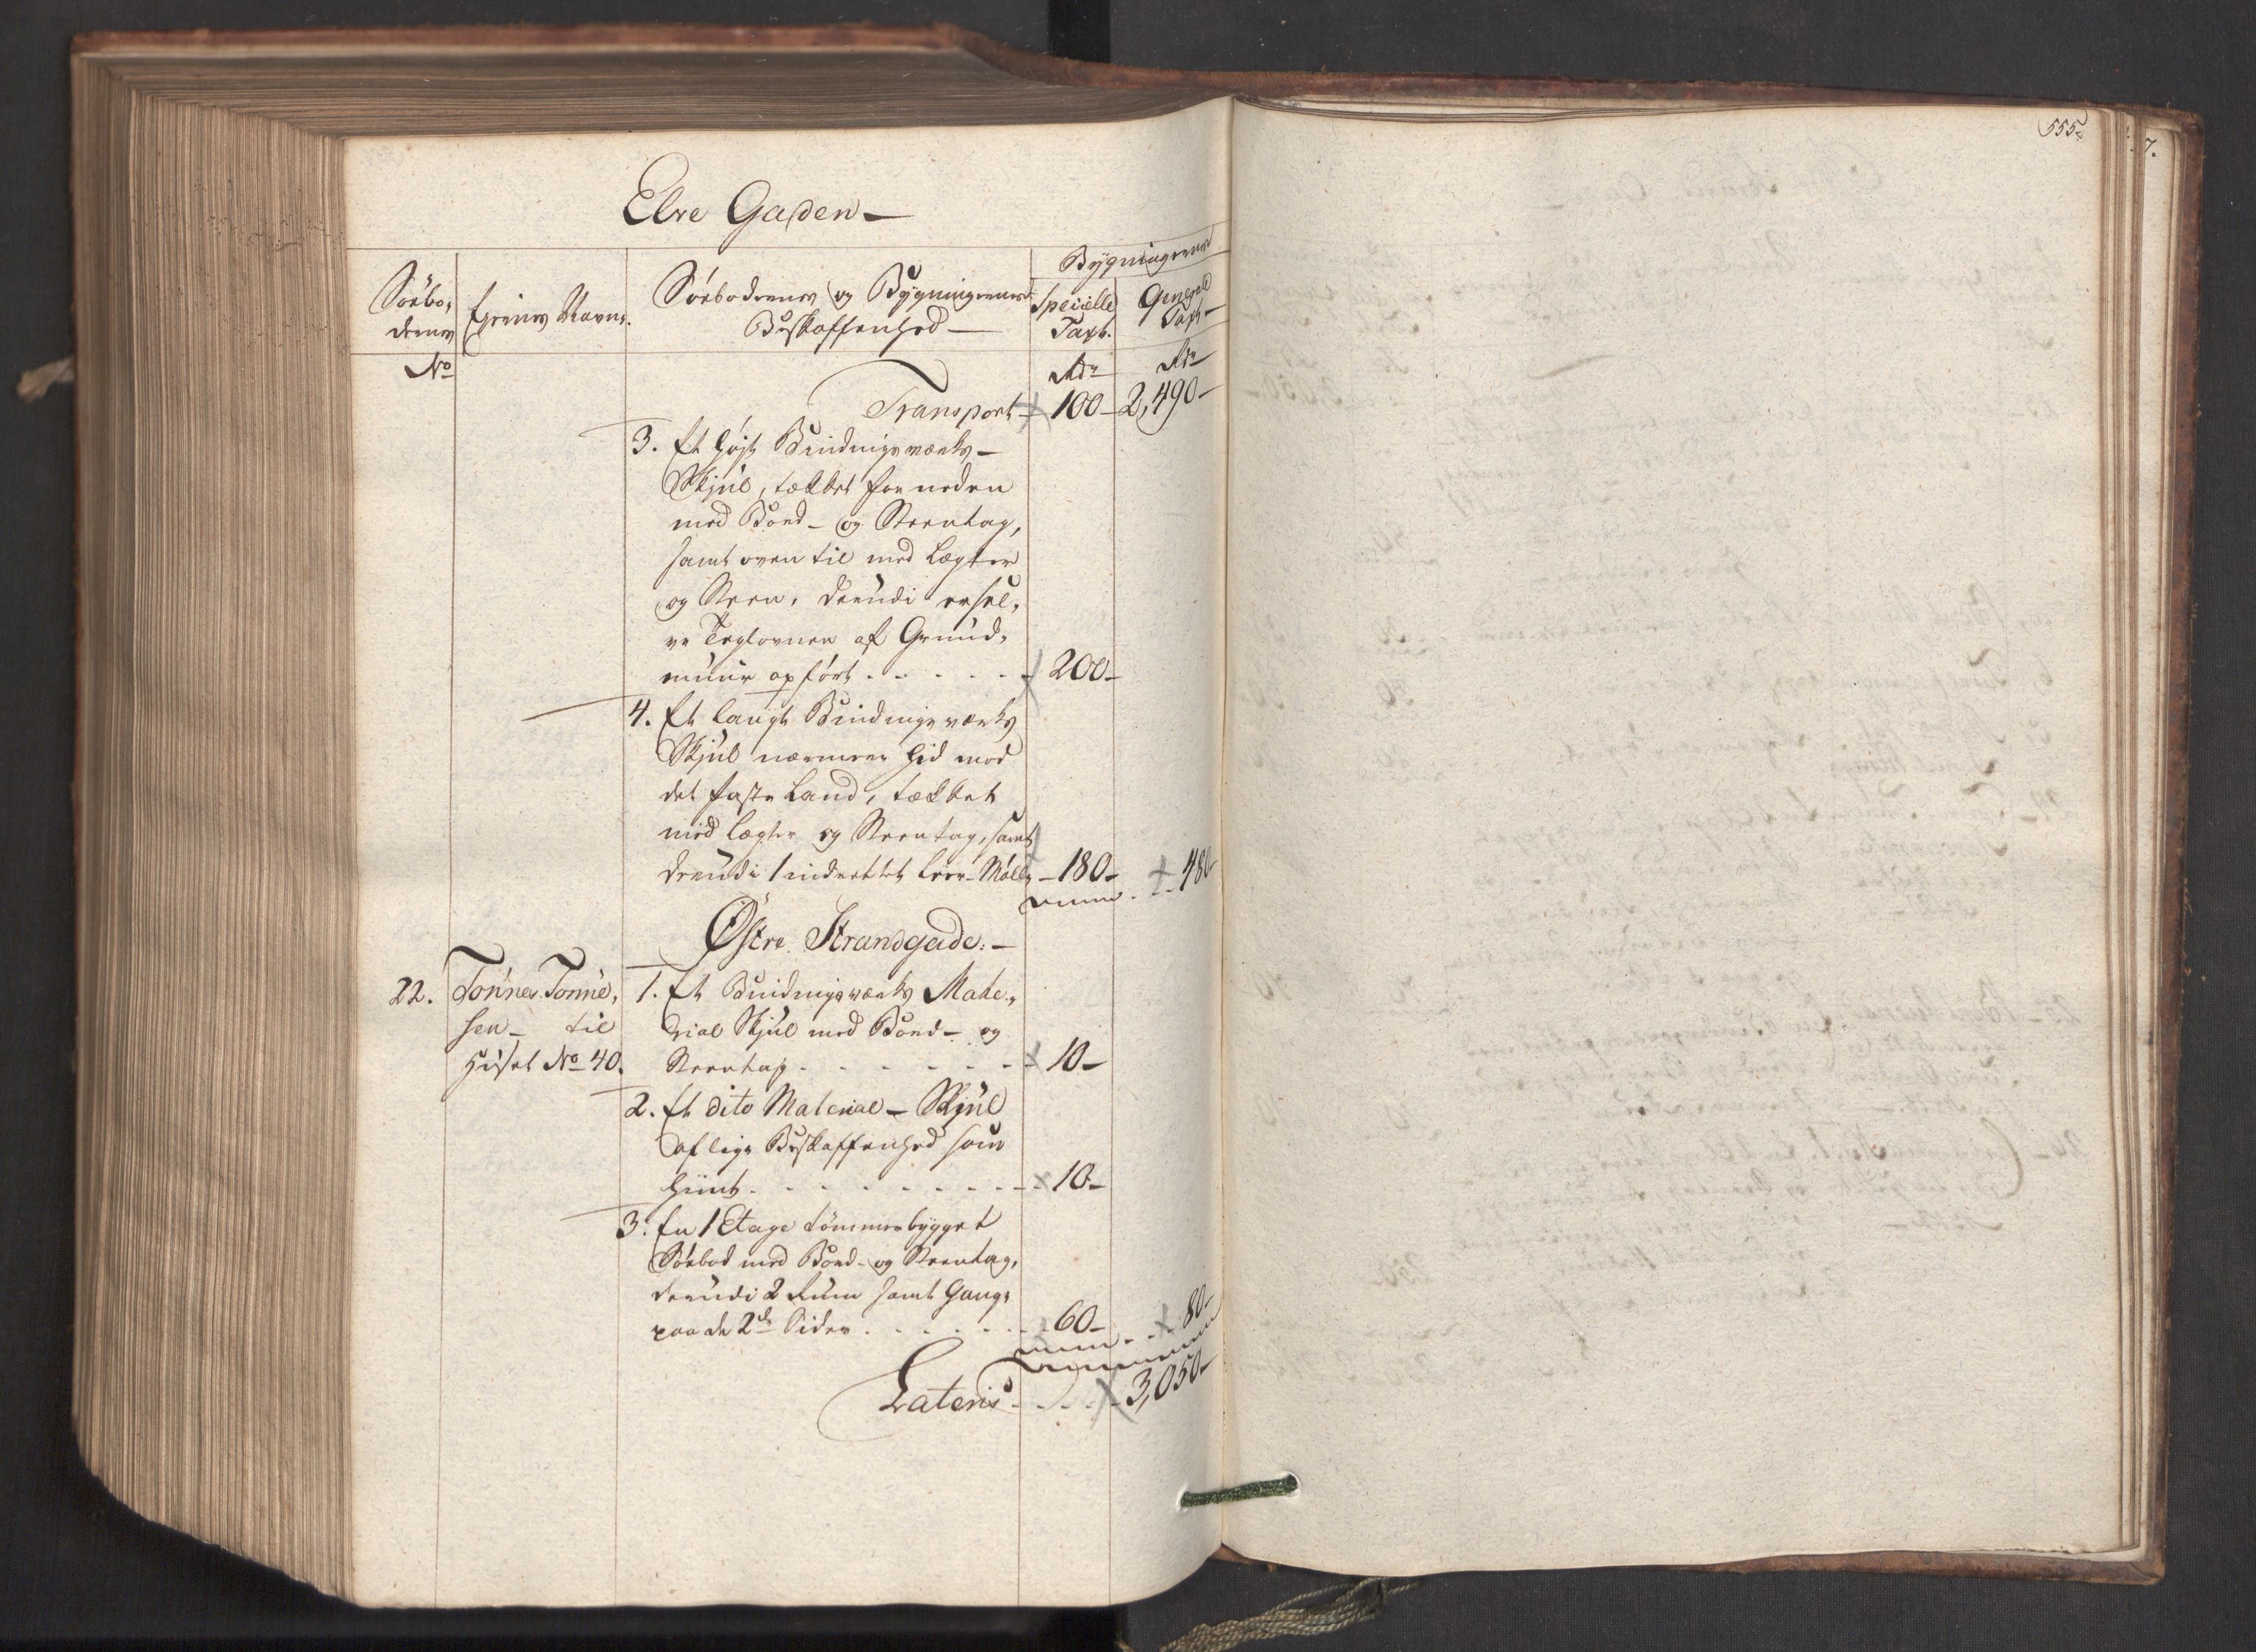 Elve Gaden
Bygningernes
Søebo-
dernes
Ejernes Navne.
Søebodernes og Bygningernes
Beskaffenhed
Specielle
Taxt.
General
Taxt
No
Rdr
Rdr
Transport 100 2,490
3. Et højt Bindingsværks
Skjul, tækket for neden
med Bord- og Steentag,
samt oven til med Lægter
og Steen, derudi er sel-
ve Teglovnen af Grund-
muur opført . . . . . 200
4. Et langt Bindingsværks
Skjul nærmere hid mod
det faste Land, tækket
med Lægter og Steentag, samt
derudi 1 indrettet Leer-Mølle 180 480
Østre Strandgade.
22. Tönnes Tönne-
sen til
Huset No 40.
1. Et Bindingsværks Mate-
rial Skjul med Bord- og
Steentag . . . . . 10
2. Et dito Material-Skjul
af lige Beskaffenhed som
hiint . . . . . 10
3. En 1 Etage tömmerbygget
Søebod med Bord- og Steentag,
derudi 2 Rum samt Gang
paa de 2de Sider . . . . . 60 80
Lateris . . . 3,050
555
7.